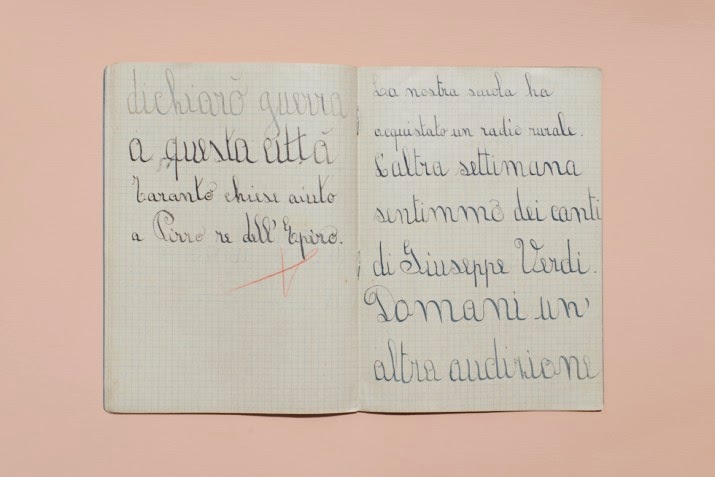 dichiarò guerra
a questa città
Taranto chiese aiuto
a Pirro re dell'Epiro.
La nostra scuola ha
acquistato un radio rurale.
L'altra settimana
sentimmo dei canti
di Giuseppe Verdi.
Domani un'
altra audizione